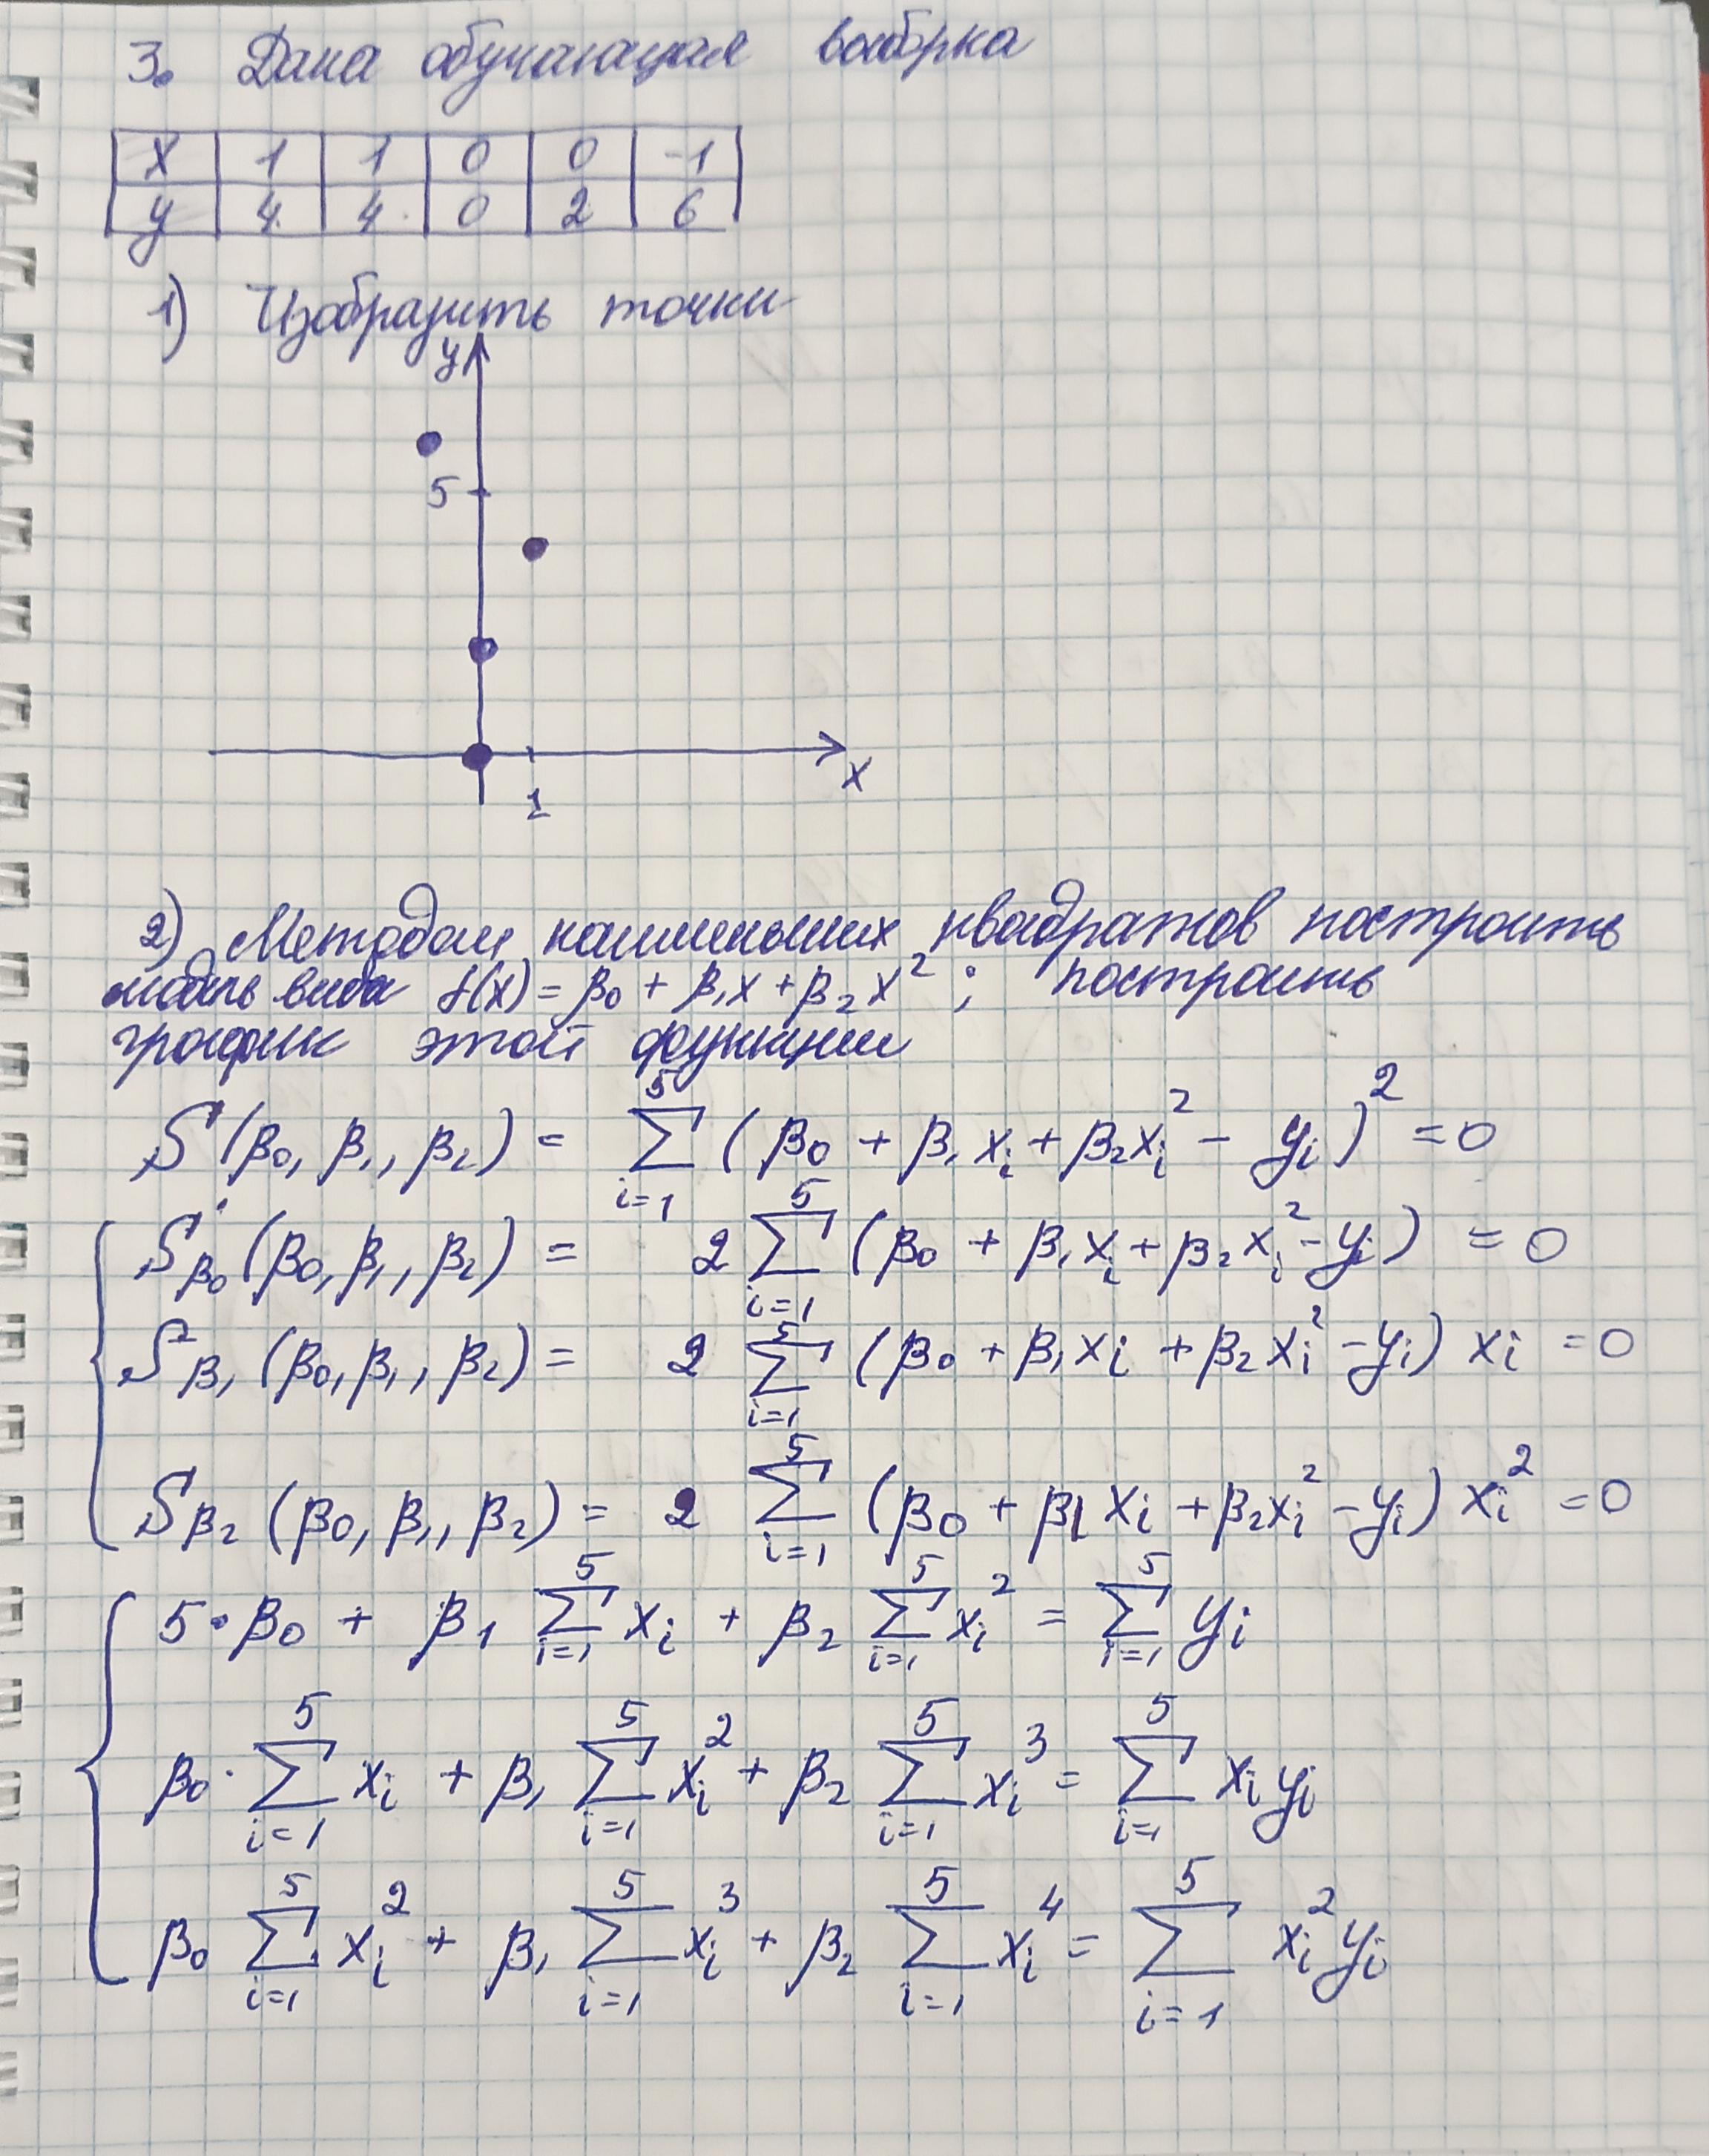 3. Дана обучающая выборка
X 1 1 0 0 -1
y 4 4 0 2 6
1) Изобразить точки
y
5
1
x
2) Методом наименьших квадратов построить
модель вида f(x) = β₀ + β₁x + β₂x² ; построить
график этой функции
S(β₀, β₁, β₂) = ∑_{i=1}^{5} (β₀ + β₁xᵢ + β₂xᵢ² − yᵢ)² = 0
S'_{β₀}(β₀, β₁, β₂) = 2 ∑_{i=1}^{5} (β₀ + β₁xᵢ + β₂xᵢ² − yᵢ) = 0
S_{β₁}(β₀, β₁, β₂) = 2 ∑_{i=1}^{5} (β₀ + β₁xᵢ + β₂xᵢ² − yᵢ) xᵢ = 0
S_{β₂}(β₀, β₁, β₂) = 2 ∑_{i=1}^{5} (β₀ + β₁xᵢ + β₂xᵢ² − yᵢ) xᵢ² = 0
5·β₀ + β₁ ∑_{i=1}^{5} xᵢ + β₂ ∑_{i=1}^{5} xᵢ² = ∑_{i=1}^{5} yᵢ
β₀· ∑_{i=1}^{5} xᵢ + β₁ ∑_{i=1}^{5} xᵢ² + β₂ ∑_{i=1}^{5} xᵢ³ = ∑_{i=1}^{5} xᵢyᵢ
β₀ ∑_{i=1}^{5} xᵢ² + β₁ ∑_{i=1}^{5} xᵢ³ + β₂ ∑_{i=1}^{5} xᵢ⁴ = ∑_{i=1}^{5} xᵢ²yᵢ